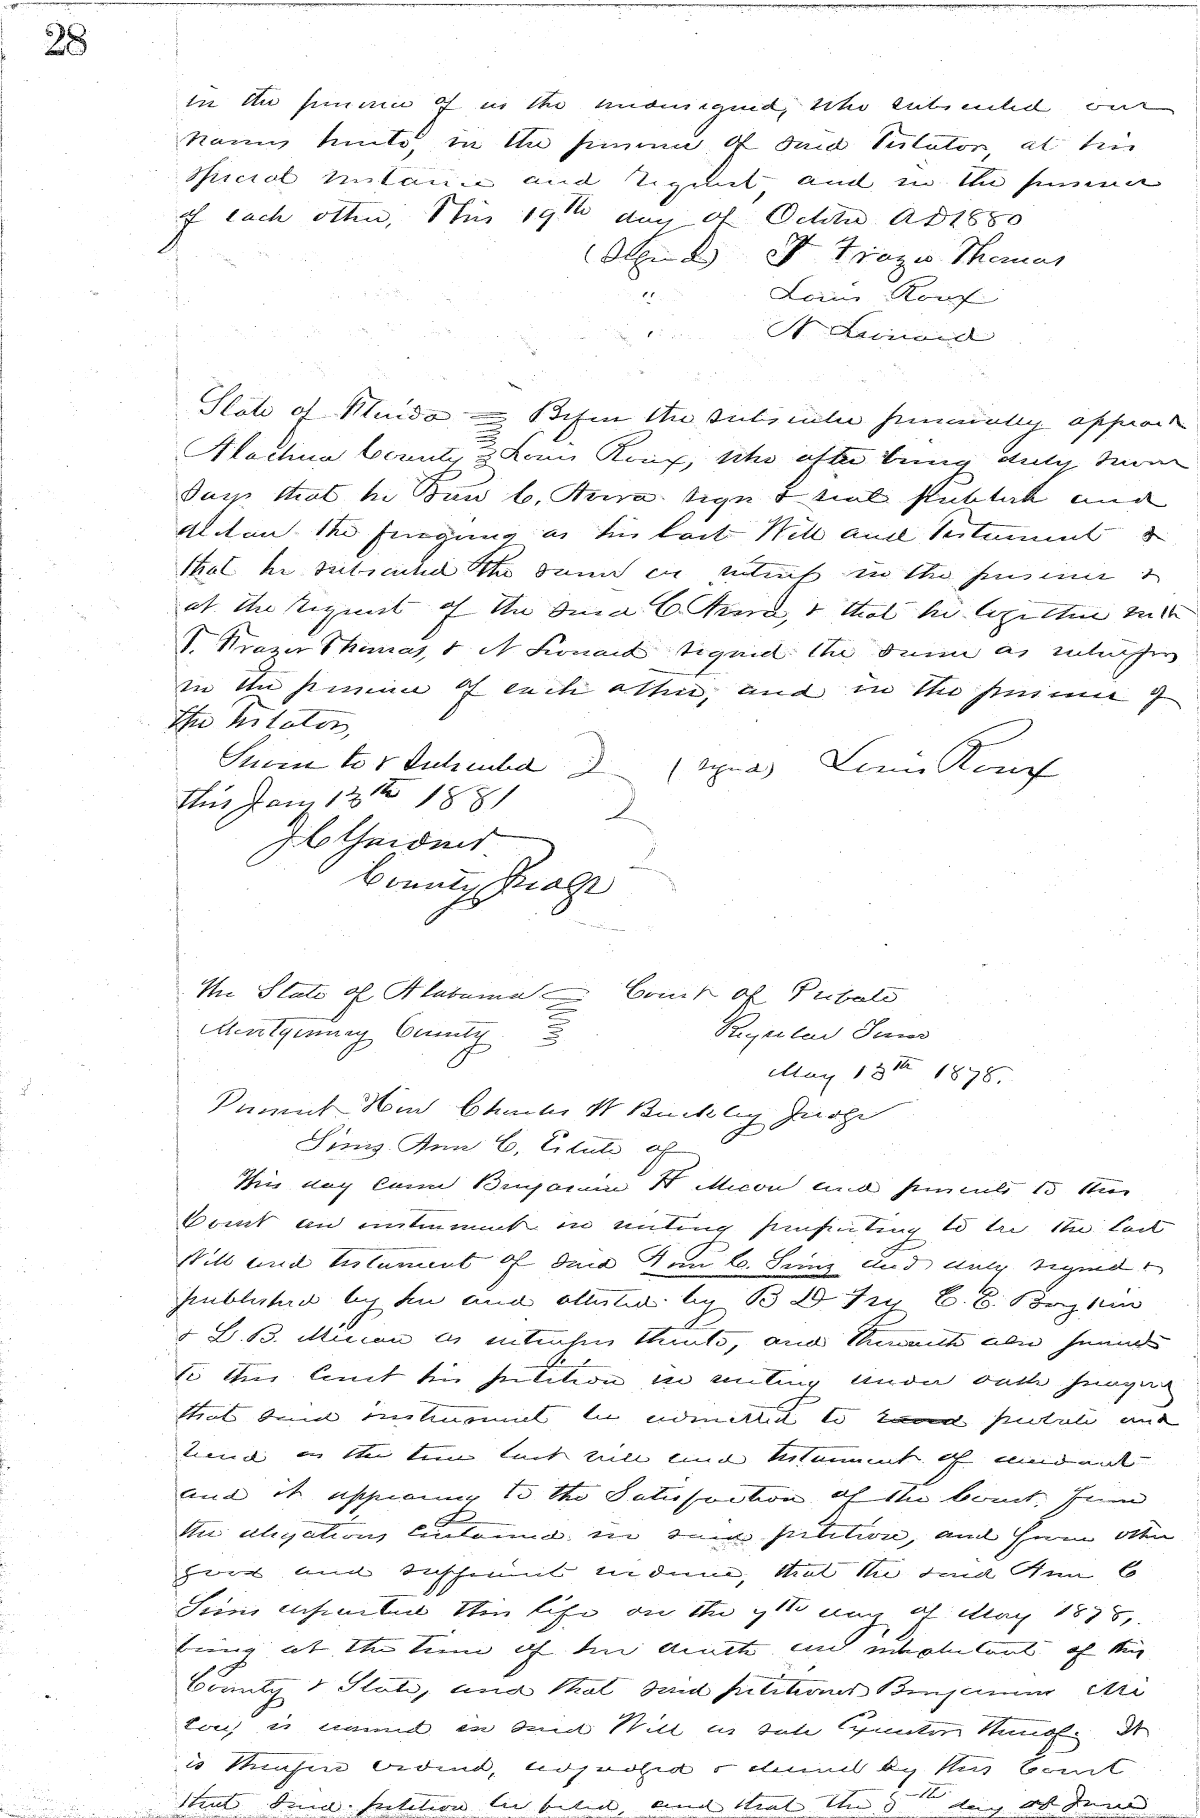 28
in the presence of us the undersigned, who subscribed our
names hereto, in the presence of said Testator, at his
special instance and request, and in the presence
of each other, This 19th day of October AD 1880
(Signed) T Frazier Thomas
" Louis Roux
" N Leonard
State of Florida Before the subscriber personally appeared
Alachua County Louis Roux, who after being duly sworn
says that he saw C. sign & seal publish and
declare the foregoing as his last Will and Testament &
that he subscribed the same as witness in the presence &
at the request of the said C. & that he together with
T. Frazer Thomas, & N Leonard signed the same as witnesses
in the presence of each other, and in the presence of
the Testator,
Sworn to & Subscribed (signed) Louis Roux
this Jany 13th 1881
J C Gardner
County Judge
The State of Alabama Court of Probate
Montgomery County Regular Term
May 13th 1878.
Present Hon Charles W Buckley Judge
Sims Ann C, Estate of
This day came Benjamin H Micou and presents to this
Court an instrument in writing purporting to be the last
Will and testament of said Ann C. Sims decd duly signed &
published by her and attested by B D Fry E. E. Boykin
& L. B. Micou as witnesses thereto, and therewith also presents
to this Court his petition in writing under oath praying
that said instrument be admitted to probate and
record as the true last will and testament of decedent
and it appearing to the Satisfaction of the Court, from
the allegations contained in said petition, and from other
good and sufficient evidence, that the said Ann C
Sims departed this life on the 7th day of May 1878,
being at the time of her death an inhabitant of this
County & State, and that said petitioner Benjamin Mi
cou, is named in said Will as sole Executor thereof. It
is therefore ordered, adjudged & decreed by this Court
that said petition be filed, and that the 5th day of June